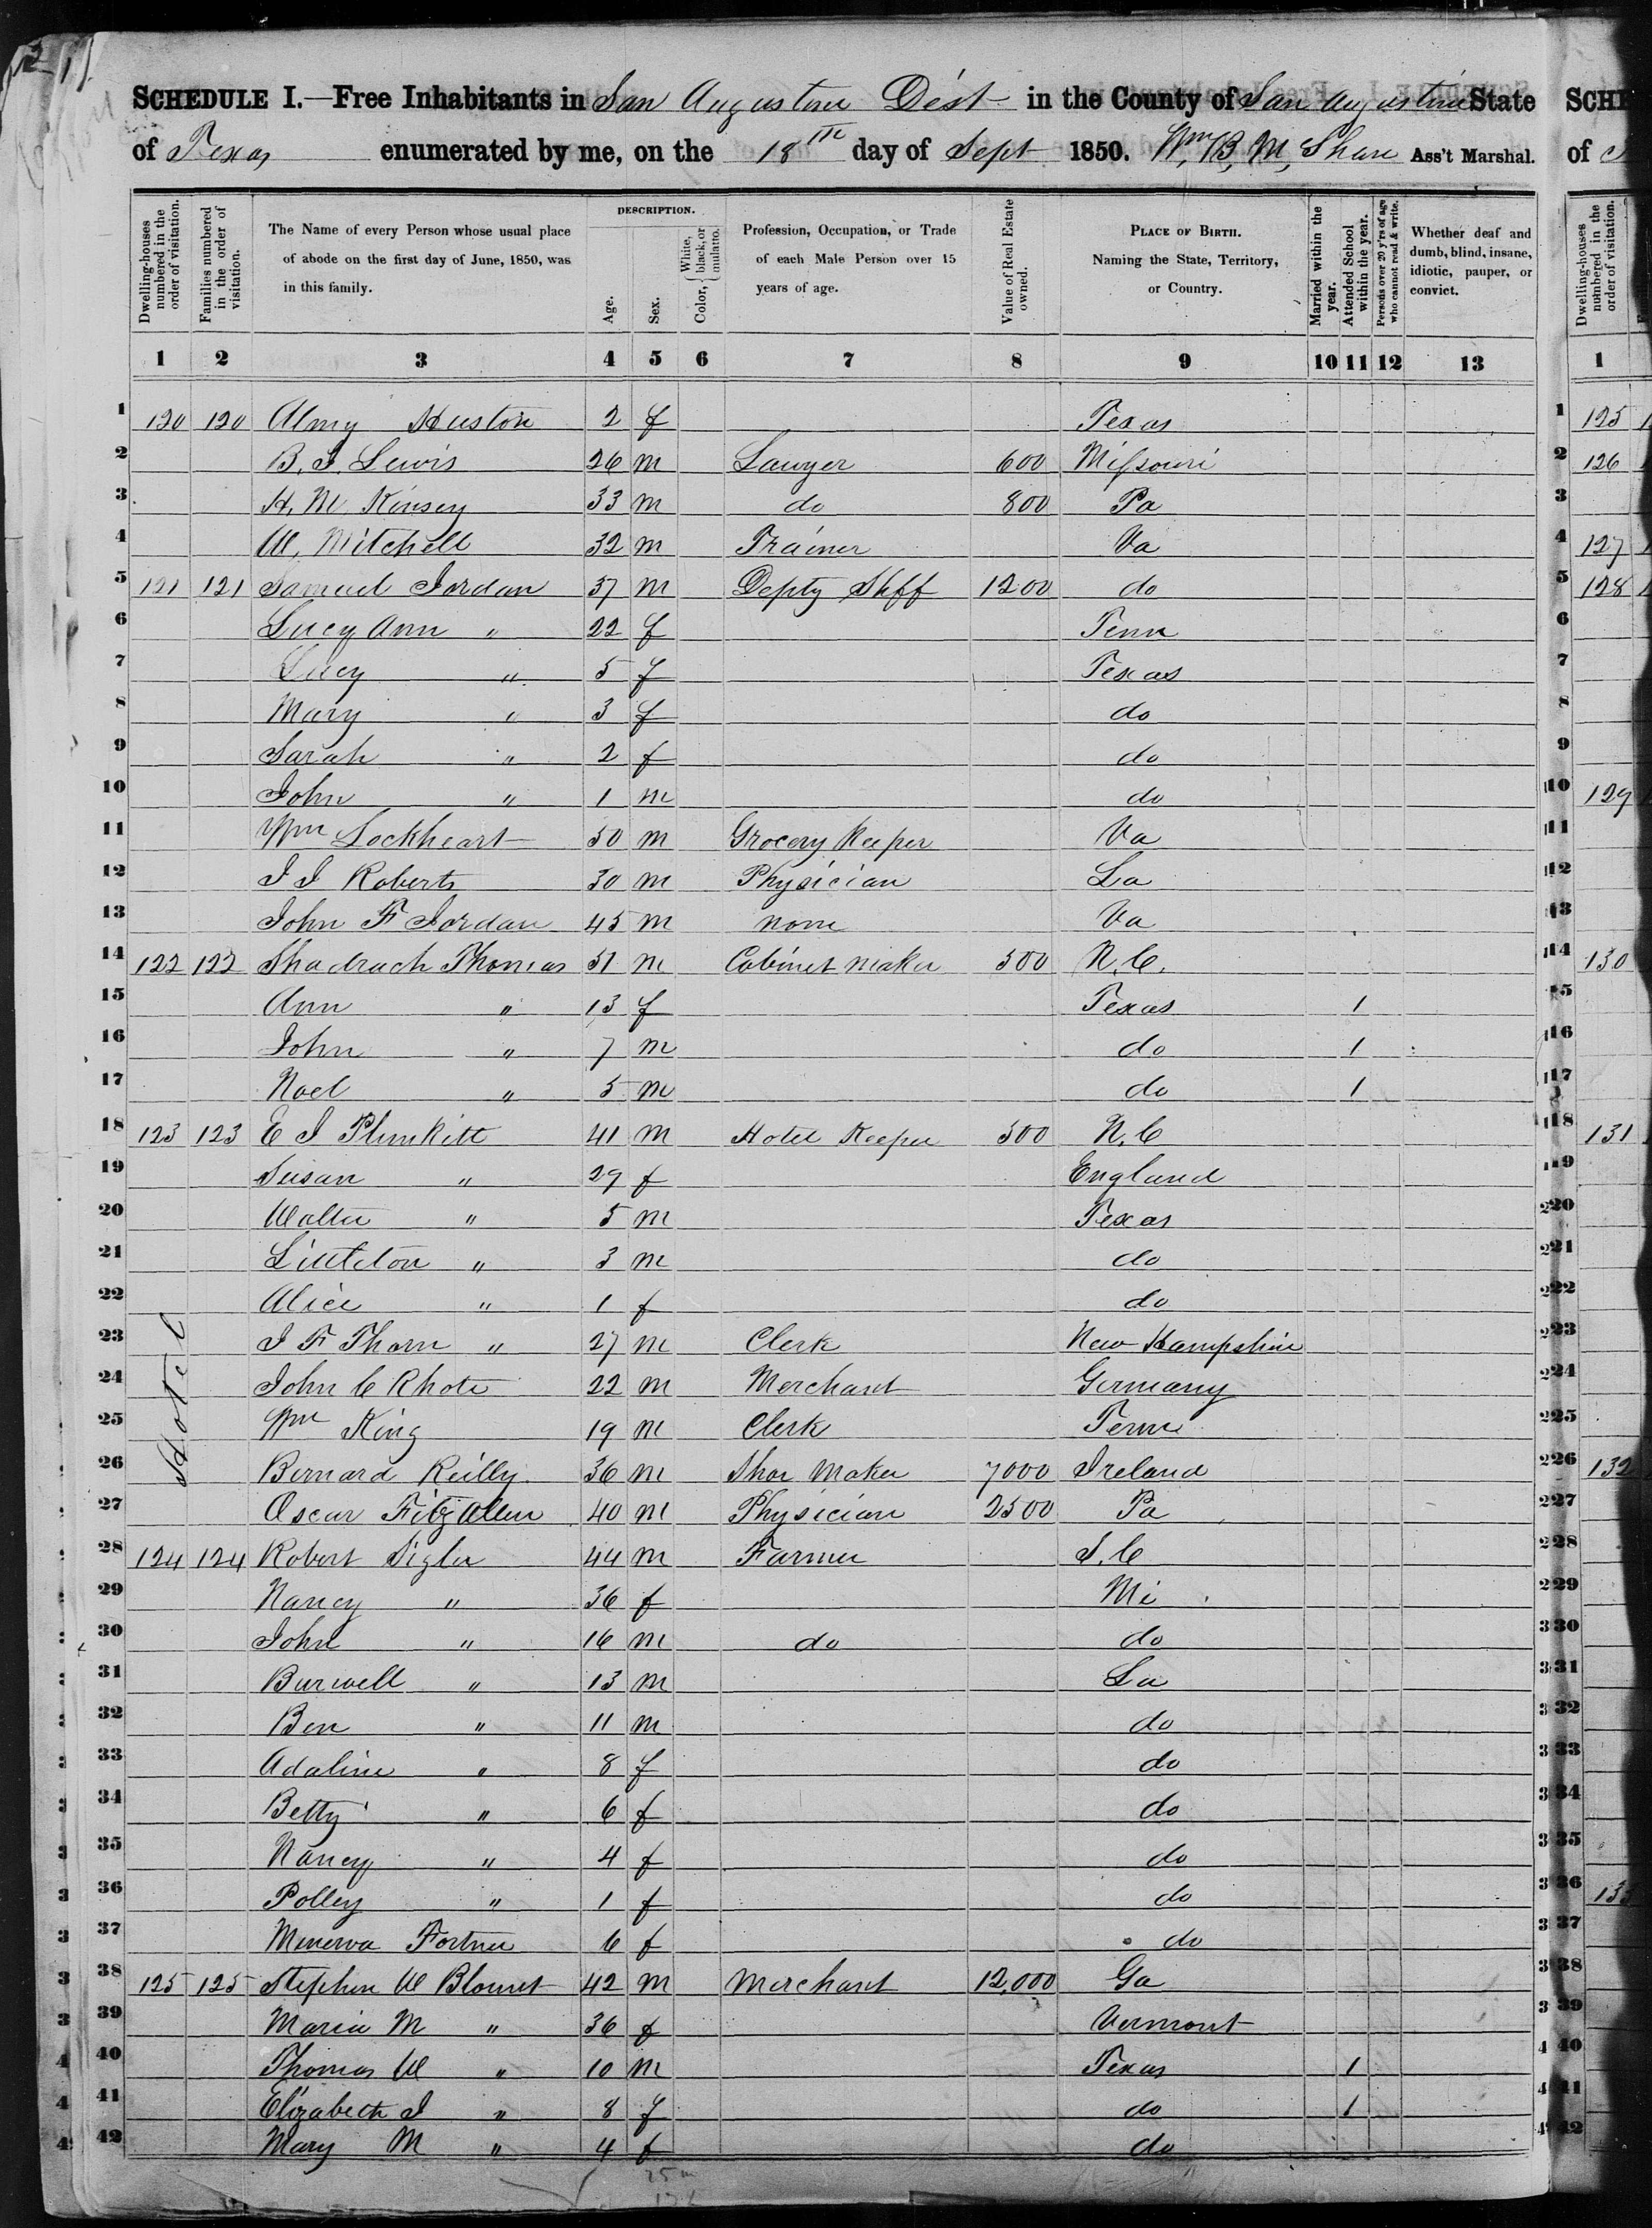 SCHEDULE I.—Free Inhabitants in San Augustine Dist in the County of San Augustine State
of Texas enumerated by me, on the 18th day of Sept 1850. Wm. B. M. Share Ass't Marshal.
Dwelling-houses numbered in the order of visitation.
Families numbered in the order of visitation.
The Name of every Person whose usual place of abode on the first day of June, 1850, was in this family.
DESCRIPTION.
Age.
Sex.
Color, White, black, or mulatto.
Profession, Occupation, or Trade of each Male Person over 15 years of age.
Value of Real Estate owned.
PLACE OF BIRTH. Naming the State, Territory, or Country.
Married within the year.
Attended School within the year.
Persons over 20 y'rs of age who cannot read & write.
Whether deaf and dumb, blind, insane, idiotic, pauper, or convict.
1 2 3 4 5 6 7 8 9 10 11 12 13
1 120 120 Almy Huston 2 f Texas
2 B. J. Lewis 26 m Lawyer 600 Missouri
3 H. M Kinsey 33 m do 800 Pa
4 W. Mitchell 32 m Trainer Va
5 121 121 Samuel Jordan 37 m Depty Shff 1200 do
6 Lucy Ann " 22 f Tenn
7 Lucy " 5 f Texas
8 Mary " 3 f do
9 Sarah " 2 f do
10 John " 1 m do
11 Wm Lockheart 50 m Grocery Keeper Va
12 J J Roberts 30 m Physician La
13 John F Jordan 45 m none Va
14 122 122 Shadrach Thomas 51 m Cabinet maker 500 N.C.
15 Ann " 13 f Texas 1
16 John " 7 m do 1
17 Noel " 5 m do 1
18 123 123 E J Plunkitt 41 m Hotel Keeper 500 N.C
19 Susan " 29 f England
20 Walter " 5 m Texas
21 Littleton " 3 m do
22 Alice " 1 f do
Hotel
23 J F Thorn " 27 m Clerk New Hampshire
24 John C Rhote 22 m Merchant Germany
25 Wm King 19 m Clerk Tenn
26 Bernard Reilly 36 m Shoe Maker 7000 Ireland
27 Oscar Fitzallen 40 m Physician 2500 Pa
28 124 124 Robert Sigler 44 m Farmer S.C
29 Nancy " 36 f Mi
30 John " 16 m do do
31 Burwell " 13 m La
32 Ben " 11 m do
33 Adaline " 8 f do
34 Betty " 6 f do
35 Nancy " 4 f do
36 Polley " 1 f do
37 Minerva Fortner 6 f do
38 125 125 Stephen W Blount 42 m Merchant 12,000 Ga
39 Maria M " 36 f Vermont
40 Thomas W " 10 m Texas 1
41 Elizabeth J " 8 f do 1
42 Mary M " 4 f do
SCHE
of
Dwelling-houses numbered in the order of visitation.
1
1 125
2 126
3
4 127
5 128
6
7
8
9
10 129
130
131
132